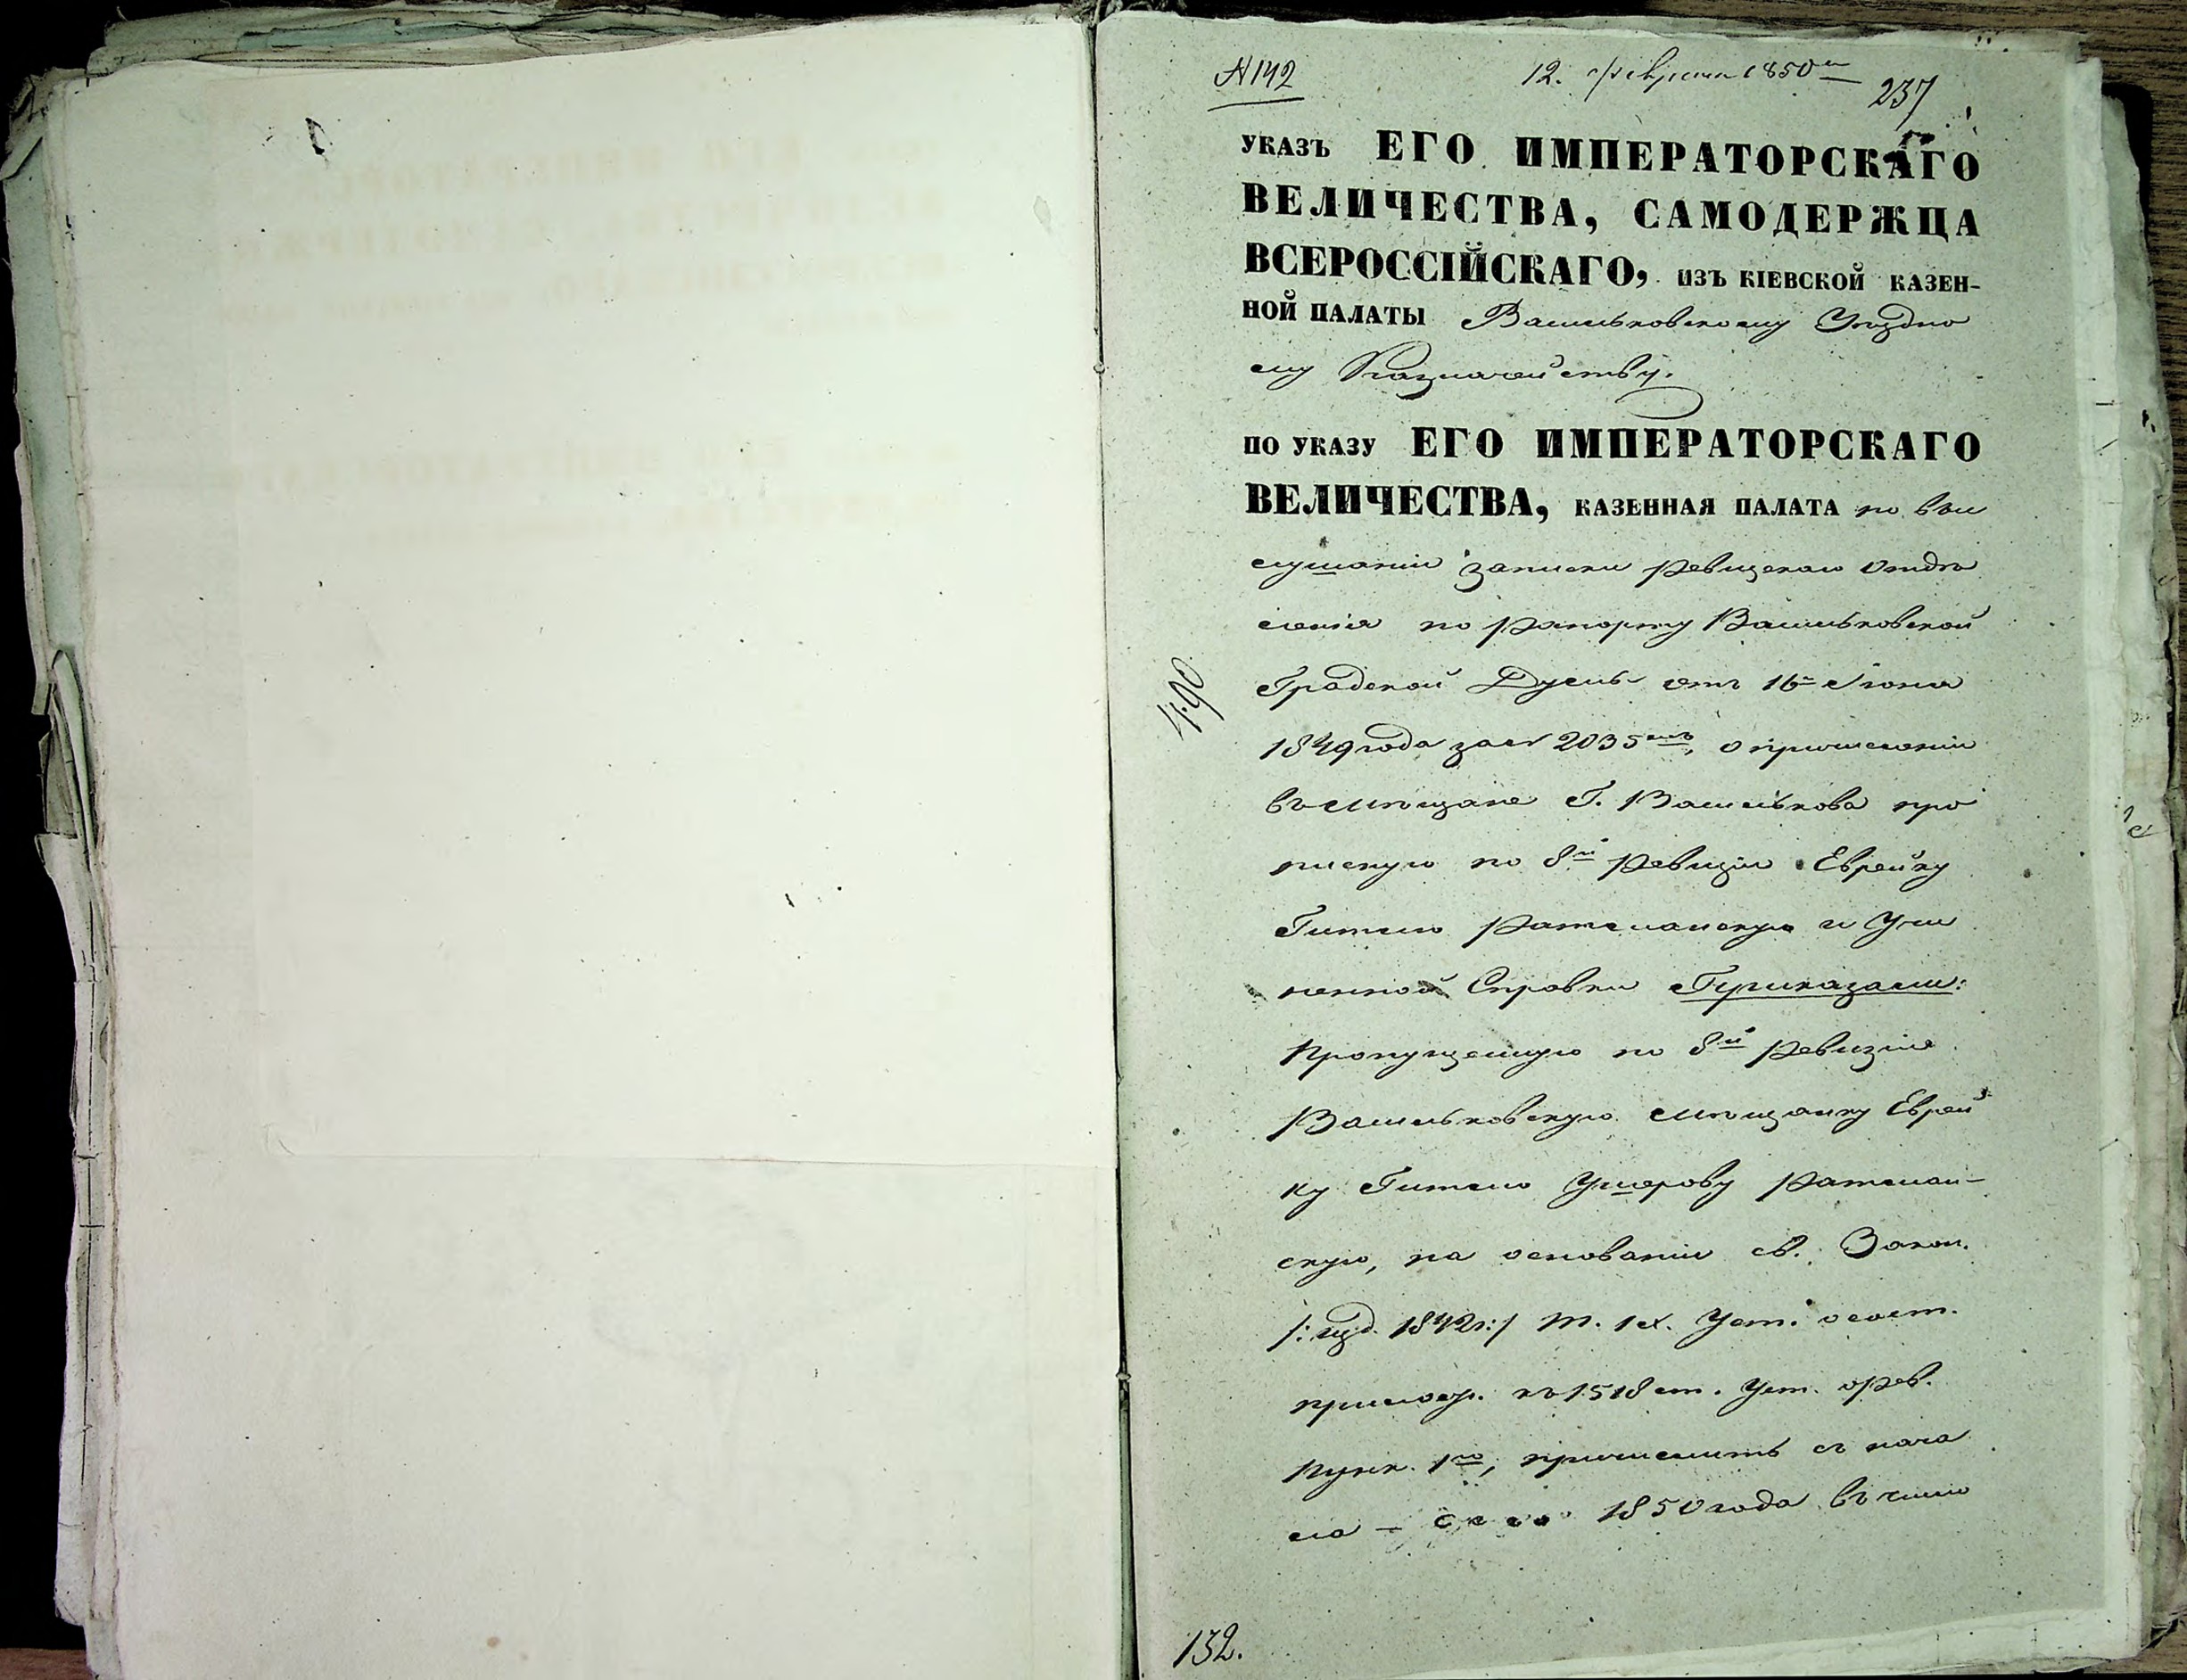 N 142
12. февраля 1850го
237
УКАЗЪ ЕГО ИМПЕРАТОРСКАГО
ВЕЛИЧЕСТВА, САМОДЕРЖЦА
ВСЕРОССІЙСКАГО, ИЗЪ КІЕВСКОЙ КАЗЕН-
НОЙ ПАЛАТЫ Васильковскому Уездно
му Казначейству.
ПО УКАЗУ ЕГО ИМПЕРАТОРСКАГО
ВЕЛИЧЕСТВА, КАЗЕННАЯ ПАЛАТА по вы
слушаніи записки Ревизскаго Отдѣ
ленія по рапорту Васильковской
Градской Думы отъ 16го Іюня
490
1849 года за N 2035мъ, о причисленіи
въ мѣщане Г. Василькова про
писную по 8й Ревизіи Еврейку
Гителю Ратманскую и Учи
ненной Справки Приказали:
Пропущенную по 8й Ревизіи
Васильковскую мѣщанку Еврей
ку Гителю Ушерову Ратман-
скую, на основаніи Св. Закон.
/: изд. 1842г:/ Т. IX. Уст. о сост.
прилож. къ 1518 ст. Уст. о Рев.
Пунк. 1го, причислить съ нача
ла - сего 1850 года въ число
132.